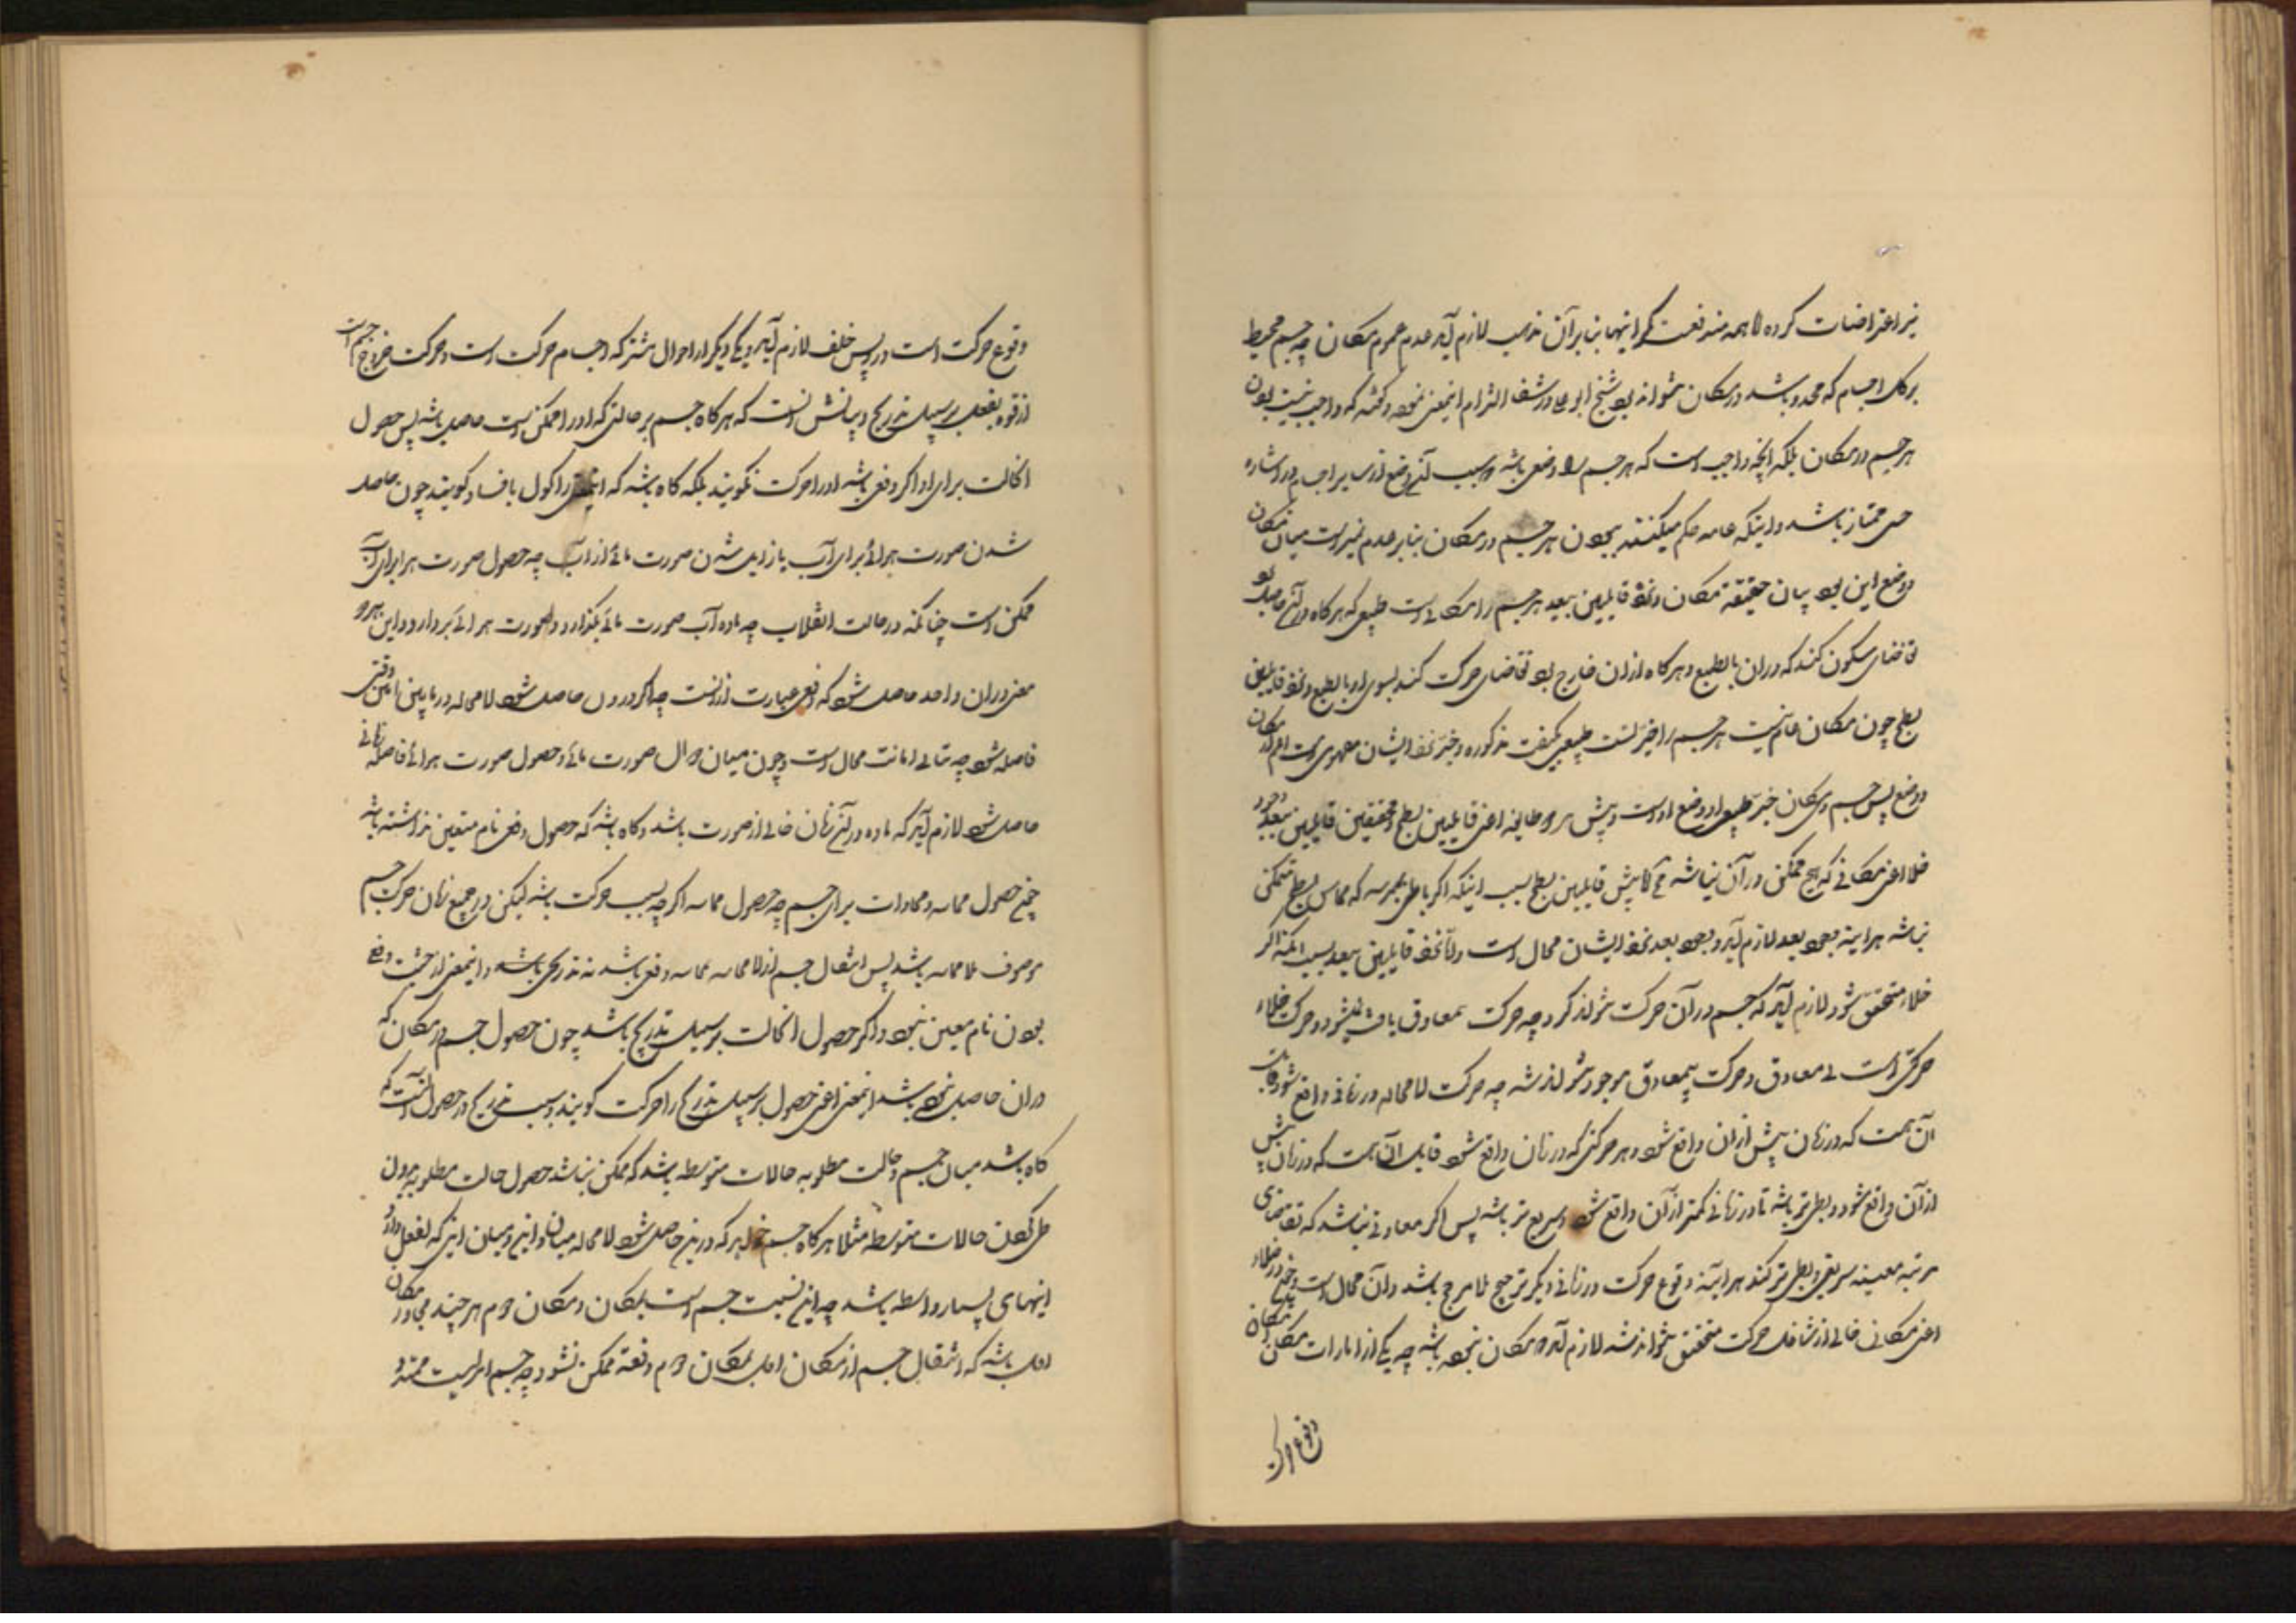 نیز اعتراضات کرده‌اند همه مندفعست مگر اینها بنابر آن مذهب لازم آید عدم عموم مکان چه جسم محیط
بر کل اجسام که محدد باشد در مکان نتواند بود شیخ ابوعلی در شفا التزام اینمعنی نموده و گفته که واجب نیست بودن
هر جسم در مکان بلکه آنچه واجب است که هر جسم را وضعی باشد و بسبب آن وضع از سایر اجسام در اشاره
حسی ممتاز باشد و اینکه عامه حکم میکنند ببودن هر جسم در مکان بنابر عدم تمیز است میان مکان
و وضع این بود بیان حقیقة مکان و نزد قایلین ببعد هر جسم را مکانی است طبیعی که هرگاه در آن حاصل بود
تقاضای سکون کند که در ان بالطبع و هرگاه از ان خارج بود تقاضای حرکت کند بسوی او بالطبع و نزد قایلین
بسطح چون مکان عام نیست هر جسم را حیزیست طبیعی بکیفیت مذکوره و حیز نزد ایشان مفهومی است اعم از مکان
و وضع پس جسم در مکان حیز طبیعی او وضع اوست و پیش هر دو طایفه اعنی قایلین بسطح و محققین قایلین ببعد وجود
خلا اعنی مکانی که هیچ متمکن در آن نباشد محال پیش قایلین بسطح بسبب اینکه اگر باطن جسم که مماس بسطح متمکن
نباشد هراینه بعدی بعد لازم آید و بعد نزد ایشان محال است و اما نزد قایلین ببعد بسبب آنکه اگر
خلاء متحقق شود لازم آید که جسم در آن حرکت نتواند کرد چه حرکت بمعاوق یافت نمیشود و حرکت در خلاء
حرکتی است بی معاوق و حرکت بیمعاوق موجود نتواند شد چه حرکت لامحاله در زمانی واقع شود و قابل
آن هست که در زمان بیش از ان واقع شود و هر حرکتی که در زمان واقع شود قابل آن هست که در زمان بیش
از آن واقع شود و بطیء‌تر باشد تا در زمانی کمتر از آن واقع شود و سریع‌تر باشد پس اگر معاوقی نباشد که تقاضای
مرتبه معینه سریعی و بطیء‌تر کند هراینه وقوع حرکت در زمانی دیگر ترجیح بلا مرجح باشد و آن محال است و نیز در خلاء
اعنی مکانی خالی از شاغل حرکت متحقق نتواند شد لازم آید که مکان نبوده باشد چه یکی از امارات مکان امکان
وقوع حرکت
وقوع حرکت است در وی پس خلف لازم آید و یکی دیگر از احوال مشترکه اجسام حرکت است و حرکت خروج جسم است
از قوه بفعل بر سبیل تدریج و بیانش آنست که هرگاه جسم بر حالتی که او را ممکن است حاصل باشد پس حصول
آنحالت برای او اگر دفعی باشد او را حرکت نگویند بلکه گاه باشد که اینمعنی را کون یا فساد گویند چون حاصل
شدن صورت هوائی برای آب یا زایل شدن صورت مائی از آب چه حصول صورت هوا برای آب
ممکن است چنانکه در حالت انقلاب چه ماده آب صورت مائی بگذارد و صورت هوائی بردارد و این هر دو
معنی در ان واحد حاصل شود که دفعی عبارت از آنست چه اگر در دو آن حاصل شود لامحاله در مابین آنین وقتی
فاصله شود چه تتالی آنات محال است و چون میان زوال صورت مائی و حصول صورت هوائی فاصله زمانی
حاصل شود لازم آید که ماده در آن زمان خالی از صورت باشد و گاه باشد که حصول دفعی نام متعین نداشته باشد
چون حصول مماسه و محاذات برای جسم چه حصول مماسه اگر چه بسبب حرکت باشد لیکن در جمیع زمان حرکت جسم
موصوف بلا مماسه باشد پس انتقال جسم از لا مماسه بمماسه دفعی باشد نه تدریجی باشد و اینمعنی از حیثیت دفعی
بودن نام معین نبود و اگر حصول آنحالت بر سبیل تدریج باشد چون حصول جسم در مکان که
در ان حاصل نبوده باشد اینمعنی اعنی حصول بر سبیل تدریج را حرکت گویند و سبب تدریج در حصول آنست که
گاه باشد میان جسم و حالت مطلوبه حالات متوسطه باشد که ممکن نباشد حصول حالت مطلوبه بدون
طی کردن حالات متوسطه مثلا هرگاه جسم خواهد که در این حاصل شود لامحاله میان او و این و میان اینی که بالفعل دارد
اینهای بسیار واسطه باشد چه این نسبت جسم است بمکان و مکان دوم هر چند مجاور مکان
اول باشد که انتقال جسم از مکان اول بمکان دوم دفعة ممکن نشود چه جسم امریست ممتد و